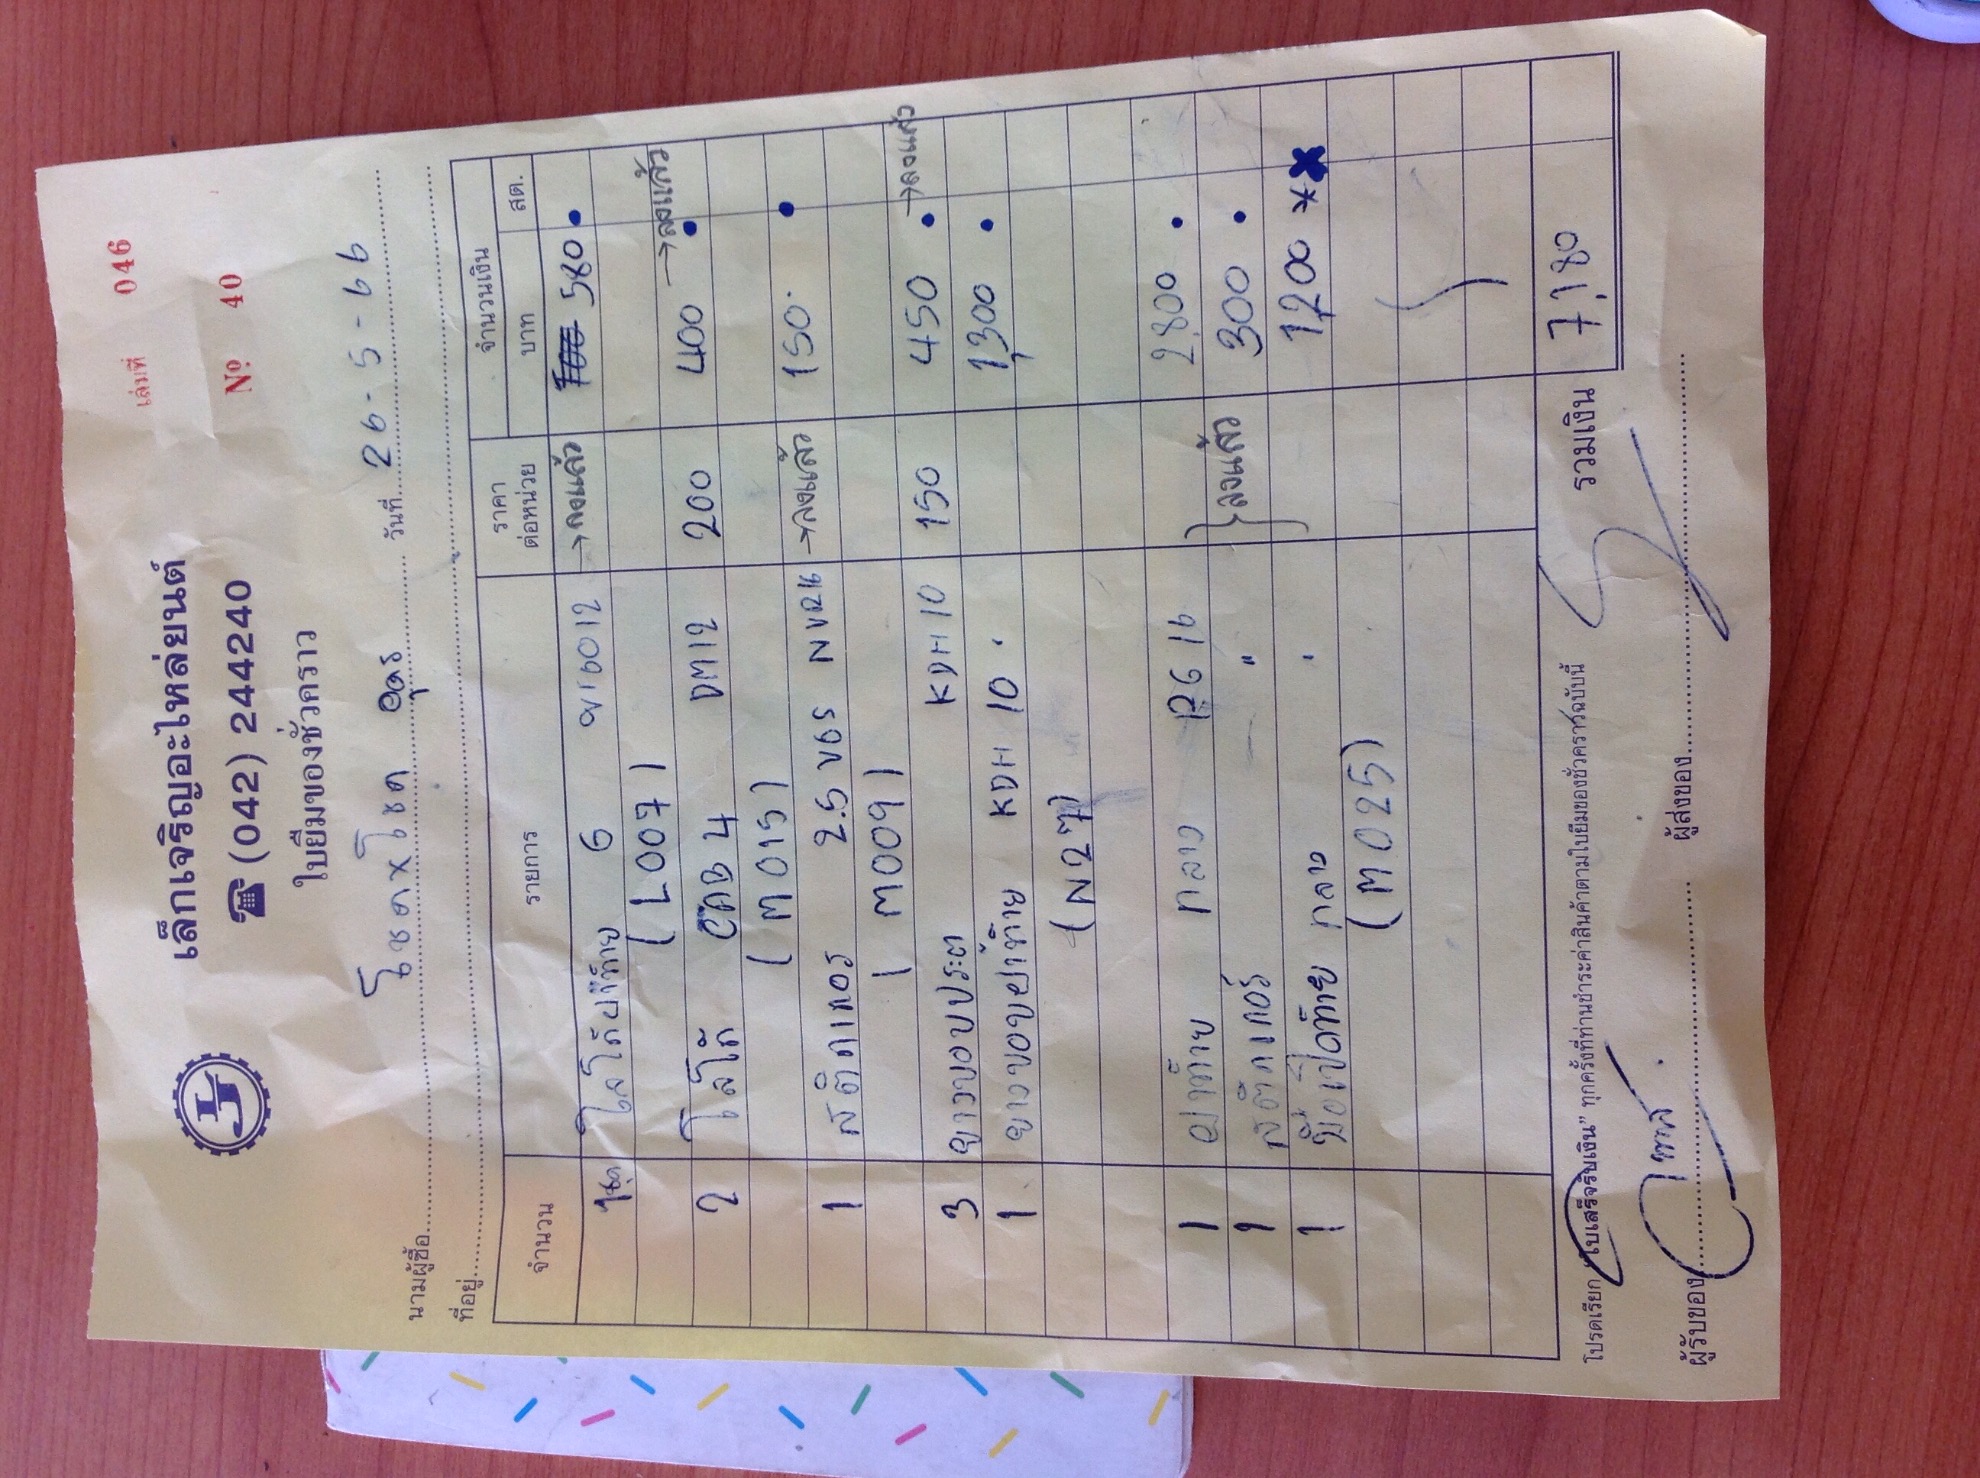 เล่มที่ 046
เล็กเจริญอะไหล่ยนต์
☎ (042) 244240
Nº 40
ใบยืมของชั่วคราว
นามผู้ซื้อ โชคxโชค อุดร วันที่ 26-5-66
ที่อยู่
จำนวน รายการ ราคาต่อหน่วย จำนวนเงิน
บาท สต.
1ชุด โลโก้ฝาท้าย G →ลงแล้ว 580
(L007)
2 โลโก้ CAB 4 DM12 200 400 →ลงแล้ว
(M015)
1 สติกเกอร 2.5 VGS →ลงแล้ว 150
(M009)
3 ยางขอบประตู KDH 10 150 450 →ลงแล้ว
1 ยางขอบฝาท้าย KDH 10 1,300
(N27)
1 ฝาท้าย กลาง 2,800
1 สติกเกอร์ " 300 } ลงแล้ว
1 มือเปิดท้าย กลาง 1,200 **
(M025)
โปรดเรียก "ใบเสร็จรับเงิน" ทุกครั้งที่ท่านชำระค่าสินค้าตามใบยืมของชั่วคราวฉบับนี้ รวมเงิน 7,180
ผู้รับของ ผู้ส่งของ